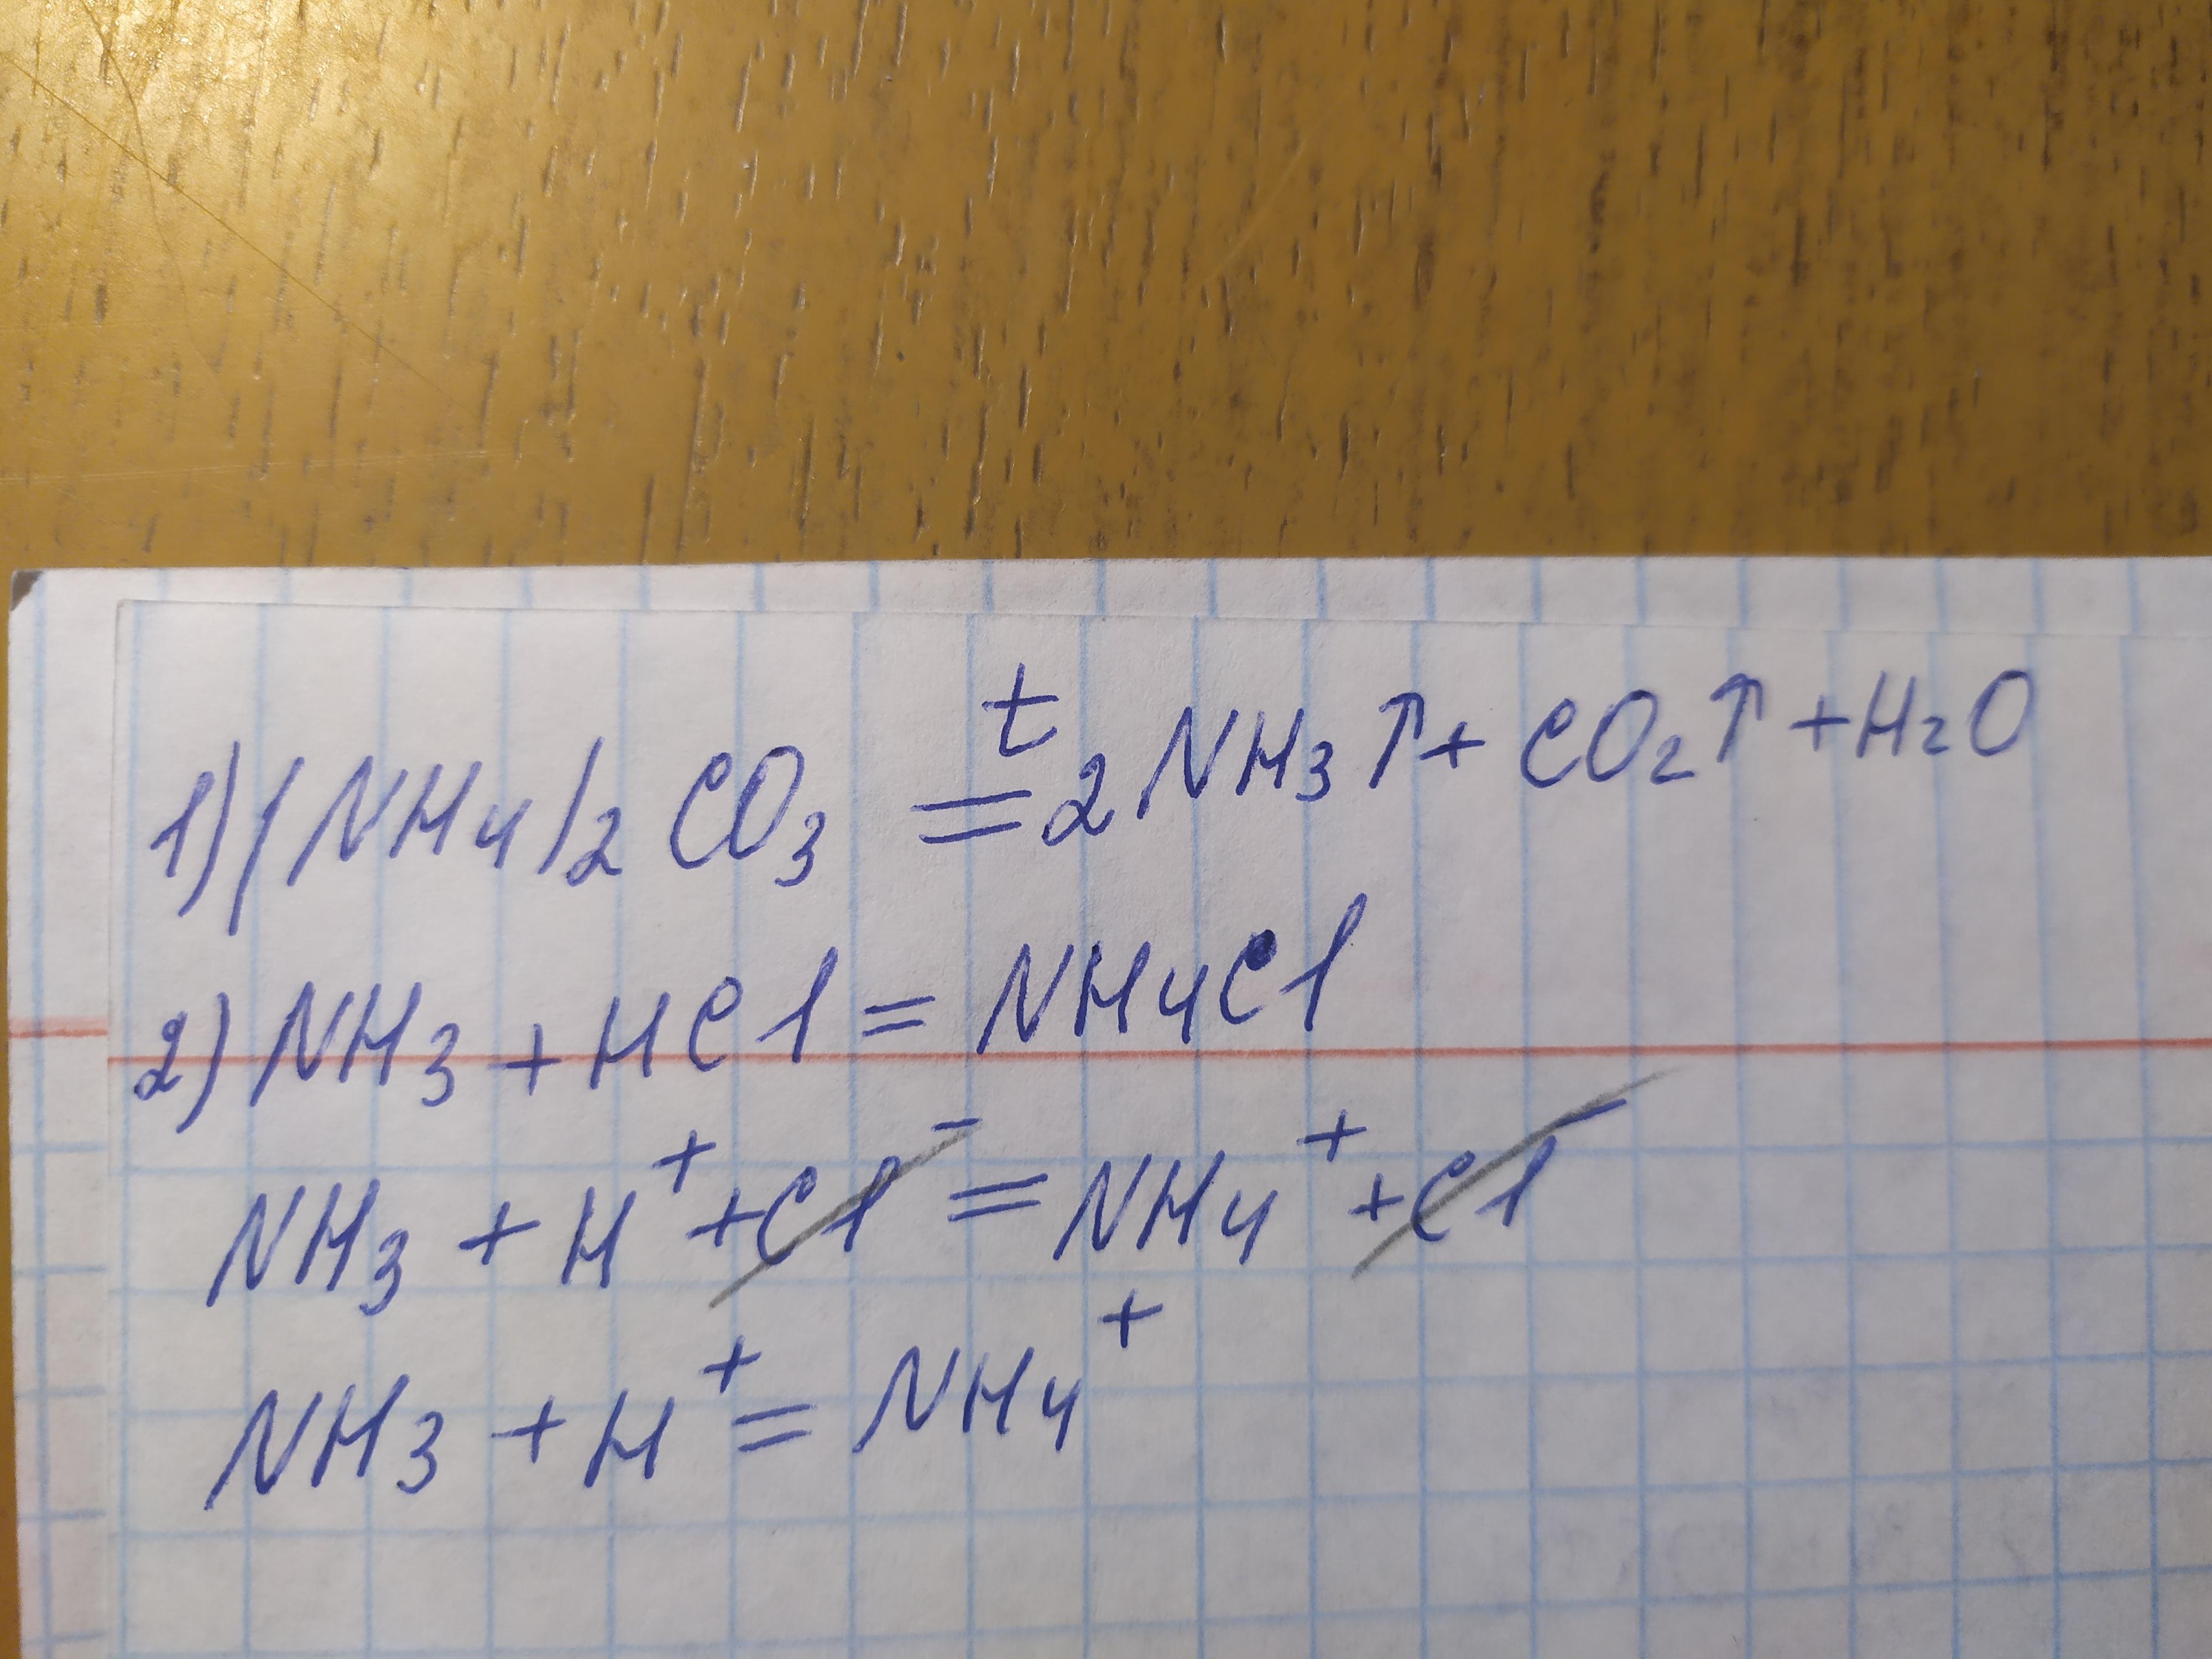 t
1) (NH4)2CO3 = 2NH3↑ + CO2↑ + H2O
2) NH3 + HCl = NH4Cl
NH3 + H+ + Cl- = NH4+ + Cl-
NH3 + H+ = NH4+